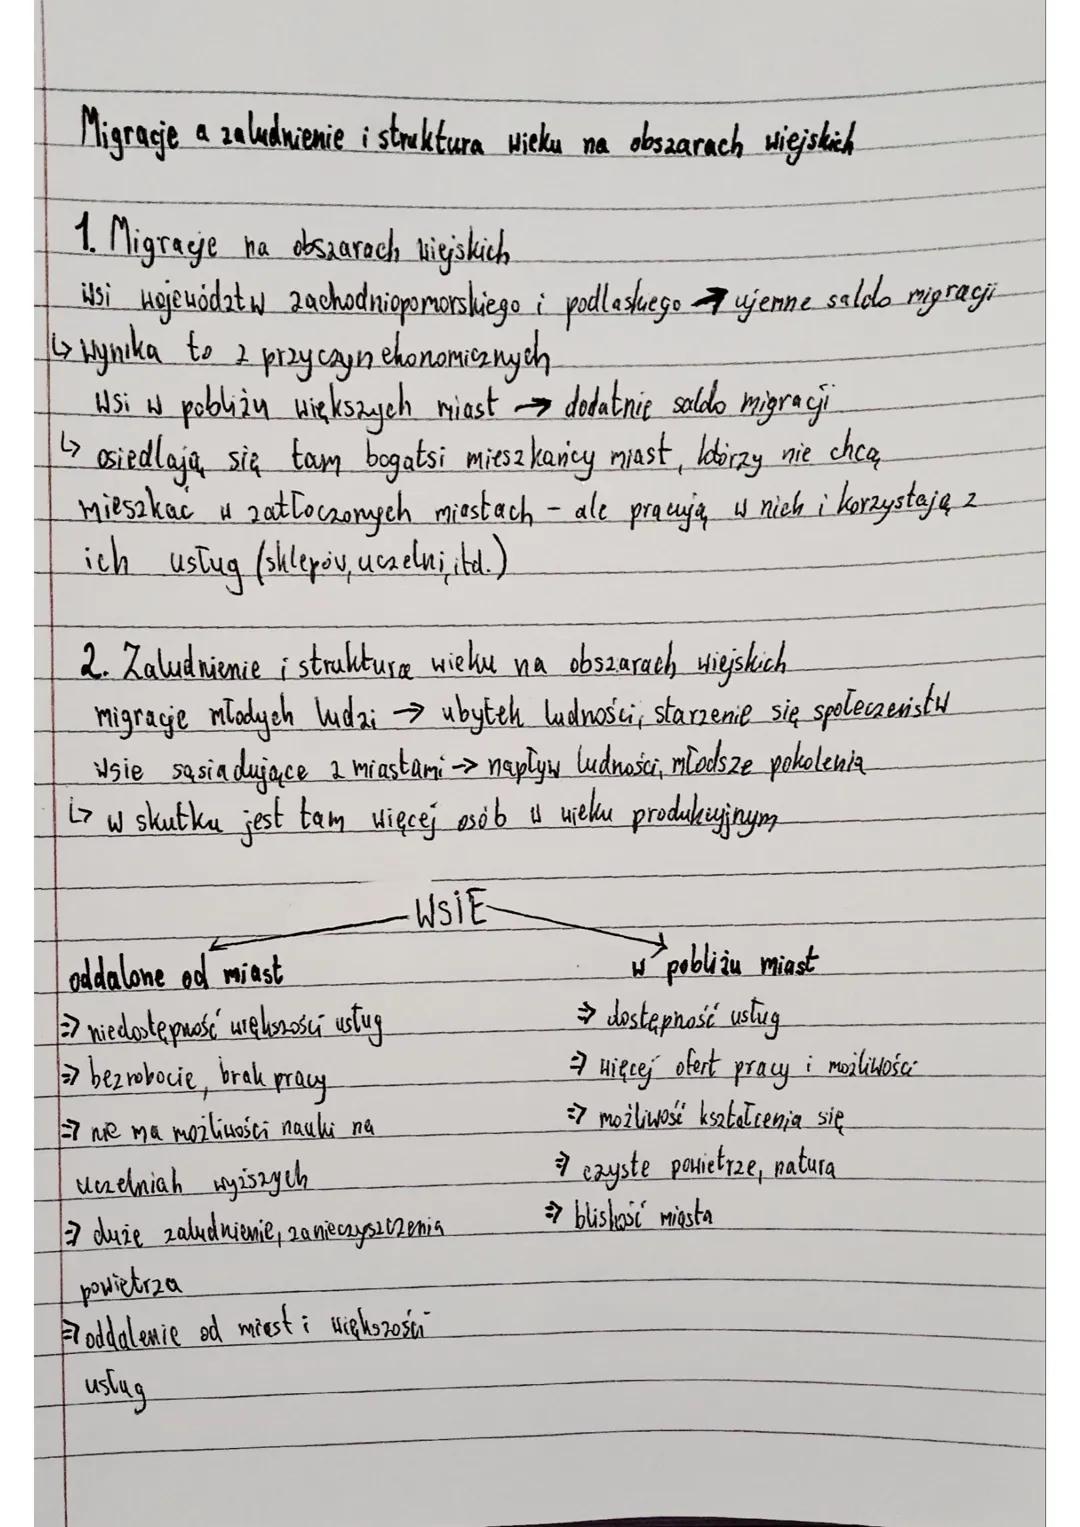 Migracje a zaludnienie i struktura wieku na obszarach wiejskich
1. Migracje na obszarach wiejskich
Wsi województw zachodniopomorskiego i podlaskiego → ujemne saldo migracji
↳ wynika to z przyczyn ekonomicznych
Wsi w pobliżu większych miast → dodatnie saldo migracji
↳ osiedlają się tam bogatsi mieszkańcy miast, którzy nie chcą
mieszkać w zatłoczonych miastach - ale pracują w nich i korzystają z
ich usług (sklepów, uczelni, itd.)
2. Zaludnienie i struktura wieku na obszarach wiejskich
migracje młodych ludzi → ubytek ludności, starzenie się społeczeństw
wsie sąsiadujące z miastami → napływ ludności, młodsze pokolenia
↳ w skutku jest tam więcej osób w wieku produkcyjnym
WSIE
oddalone od miast
⇒ niedostępność większości usług
⇒ bezrobocie, brak pracy
⇒ nie ma możliwości nauki na
uczelniah wyższych
⇒ duże zaludnienie, zanieczyszczenia
powietrza
⇒ oddalenie od miast i większości
usług
w pobliżu miast
⇒ dostępność usług
⇒ więcej ofert pracy i możliwości
⇒ możliwość kształcenia się
⇒ czyste powietrze, natura
⇒ bliskość miasta